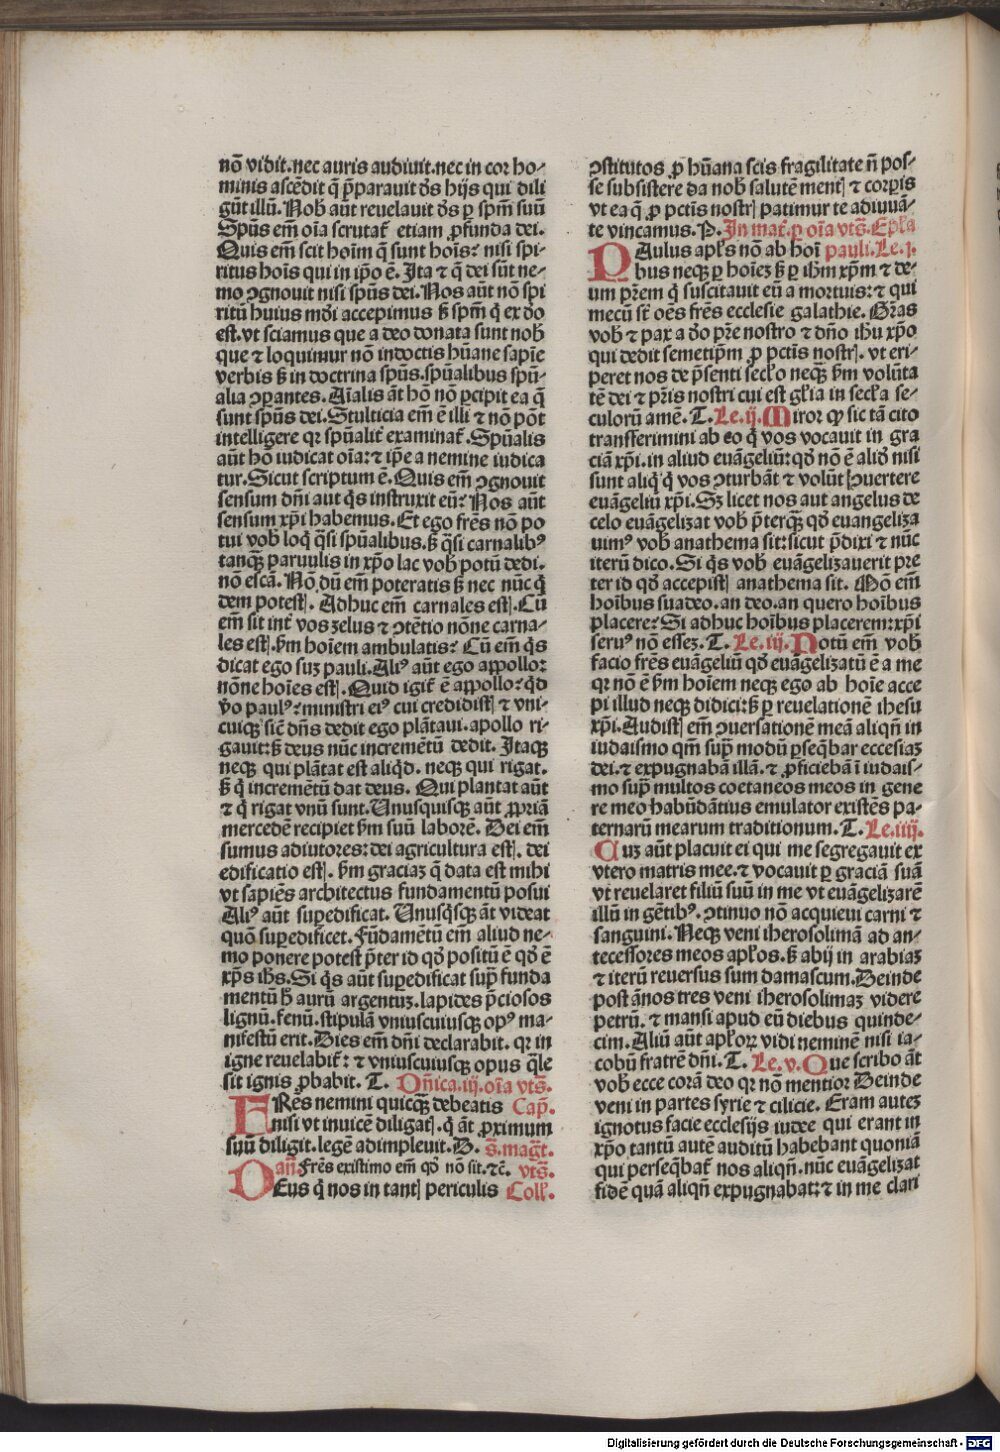 nō vidit.nec auris audiuit.nec in cor ho⸗
minis ascēdit q̄ p̄parauit d̄s hijs qui dili
gūt illū. Nob̄ aūt reuelauit d̄s ꝑ sp̄m suū
Spūs em̄ oīa scrutat᷑ etiam ꝓfunda dei.
Quis em̄ scit hoīm q̄ sunt hoīs: nisi spi⸗
ritus hoīs qui in ip̄o ē. Ita ⁊ q̄ dei sūt ne⸗
mo ꝯgnouit nisi spūs dei. Nos aūt nō spi
ritū huius mūdi accepimus ß sp̄m q̄ ex deo
est. vt sciamus que a deo donata sunt nob̄
que ⁊ loquimur nō in doctis hūane sapīe
verbis ß in doctrina spūs.spūalibus spū⸗
alia ꝯpantes. Aīalis āt hō nō ꝑcipit ea q̄
sunt spūs dei. Stulticia em̄ ē illi ⁊ nō pōt
intelligere qꝛ spūalit᷑ examinat᷑. Spūalis
aūt hō iudicat oīa: ⁊ ip̄e a nemine iudica
tur. Sicut scriptum ē. Quis em̄ ꝯgnouit
sensum dn̄i aut q̄s instruxit eū: Nos aūt
sensum xp̄i habemus. Et ego fr̄es nō po
tui vob̄ loq̄ q̄si spūalibus.ß q̄si carnalibꝰ
tanqꝫ paruulis in xp̄o lac vob̄ potū dedi.
nō escā. Nō dū em̄ poteratis ß nec nūc q̄
dem potestꝭ. Adhuc em̄ carnales estꝭ. Cū
em̄ sit int᷑ vos zelus ⁊ ꝯtētio nōne carna⸗
les estꝭ. ẜm hoīem ambulatis: Cū em̄ q̄s
dicat ego suꝫ pauli. Aliꝰ aūt ego appollo:
nōne hoīes estꝭ. Quid igit᷑ ē appollo: qd̄
v̄o paulꝰ: ministri eiꝰ cui credidistꝭ ⁊ vni⸗
cuiqꝫ sic̄ dn̄s dedit ego plātaui. apollo ri⸗
gauit:ß deus nūc incremētū dedit. Itaqꝫ
neqꝫ qui plātat est aliqd̄. neqꝫ qui rigat.
ß q̄ incremētū dat deus. Qui plantat aūt
⁊ q̄ rigat vnū sunt. Unusquisqꝫ aūt ꝓpriā
mercedē recipiet ẜm suū laborē. Dei em̄
sumus adiutores: dei agricultura estꝭ. dei
edificatio estꝭ. ẜm graciaꝫ q̄ data est mihi
vt sapiēs architectus fundamentū posui
Aliꝰ aūt suꝑedificat. Unusq̄sqꝫ āt videat
quō suꝑedificet. Fūdamētū em̄ aliud ne⸗
mo ponere potest p̄ter id qd̄ positū ē qd̄ ē
xp̄s ih̄s. Si q̄s aūt suꝑedificat sup̄ funda
mentū h̄ aurū argentuꝫ. lapides p̄ciosos
lignū. fenū. stipulā vniuscuiusqꝫ opꝰ ma⸗
nifestū erit. Dies em̄ dn̄i declarabit. qꝛ in
igne reuelabit᷑: ⁊ vniuscuiusqꝫ opus q̄le
sit ignis ꝓbabit. T. Dn̄ica.iij.oīa vts̄.
FRēs nemini quicqꝫ debeatis Cap̄.
nisi vt inuicē diligatꝭ.q̄ āt ꝓximum
suū diligit.legē adimpleuit. D. s̄.mag̅t.
an̄. Fr̄es existimo em̄ qd̄ nō sit.⁊c̄. vts̄.
DEus q̄ nos in tantꝭ periculis Coll̄.
ꝯstitutos ꝓ hūana scis fragilitate n̄ pos⸗
se subsistere da nob̄ salutē mentꝭ ⁊ corꝑis
vt ea q̄ ꝓ pctīs nostrꝭ patimur te adiuuā⸗
te vincamus. P. In mat̄. ꝑ oīa vts̄. Ep̄la
PAulus apl̄s nō ab hoī pauli.Le.j.
bus neqꝫ ꝑ hoīeꝫ ß ꝑ ih̄m xp̄m ⁊ de⸗
um pr̄em q̄ suscitauit eū a mortuis: ⁊ qui
mecū st̄ oēs fr̄es ecclesie galathie. Gr̄as
vob̄ ⁊ pax a deo pr̄e nostro ⁊ dn̄o ih̄u xp̄o
qui dedit semetip̄m ꝓ pctīs nostrꝭ. vt eri⸗
peret nos de p̄senti sec̄lo neqꝫ ẜm volūta
tē dei ⁊ pr̄is nostri cui est gl̄ia in sec̄la se⸗
culorū amē. T. Le.ij. Miror qꝙ sic tā cito
transferimini ab eo q̄ vos vocauit in gra
ciā xp̄i. in aliud euāgeliū: qd̄ nō ē aliud nisi
sunt aliq̄ q̄ vos ꝯturbāt ⁊ volūt ꝯuertere
euāgeliū xp̄i. Sꝫ licet nos aut angelus de
celo euāgelizat vob̄ p̄terqꝫ qd̄ euangeliza
uimꝰ vob̄ anathema sit: sicut p̄dixi ⁊ nūc
iterū dico. Si q̄s vob̄ euāgelizauerit pre
ter id qd̄ accepistꝭ anathema sit. Mō em̄
hoībus suadeo. an deo. an quero hoībus
placere: Si adhuc hoībus placerem: xp̄i
seruꝰ nō esseꝫ. T. Le.iij. Notū em̄ vob̄
facio fr̄es euāgeliū qd̄ euāgelizatū ē a me
qꝛ nō ē ẜm hoīem neqꝫ ego ab hoīe acce
pi illud neqꝫ didici: ß ꝑ reuelationē ihesu
xp̄i. Audistꝭ em̄ ꝯuersationē meā aliqn̄ in
iudaismo qm̄ sup̄ modū ꝑseq̄bar ecclesiaꝫ
dei. ⁊ expugnabā illā. ⁊ ꝓficiebā ī iudais⸗
mo sup̄ multos coetaneos meos in gene
re meo habūdātius emulator existēs pa⸗
ternarū mearum traditionum. T. Le.iiij.
Cuꝫ aūt placuit ei qui me segregauit ex
vtero matris mee. ⁊ vocauit ꝑ graciā suā
vt reuelaret filiū suū in me vt euāgelizarē
illū in gētibꝰ. ꝯtinuo nō acquieui carni ⁊
sanguini. Neqꝫ veni iherosolimā ad an⸗
tecessores meos apl̄os. ß abij in arabiaꝫ
⁊ iterū reuersus sum damascum. Deinde
post ānos tres veni iherosolimaꝫ videre
petrū. ⁊ mansi apud eū diebus quinde⸗
cim. Aliū aūt apl̄oꝝ vidi neminē nisi ia⸗
cobū fratrē dn̄i. T. Le.v. Que scribo āt
vob̄ ecce corā deo qꝛ nō mentior Deinde
veni in partes syrie ⁊ cilicie. Eram auteꝫ
ignotus facie ecclesijs iudee qui erant in
xp̄o tantū autē auditū habebant quoniā
qui perseq̄bat᷑ nos aliqn̄. nūc euāgelizat
fidē quā aliqn̄ expugnabat: ⁊ in me clari
Digitalisierung gefördert durch die Deutsche Forschungsgemeinschaft - DFG